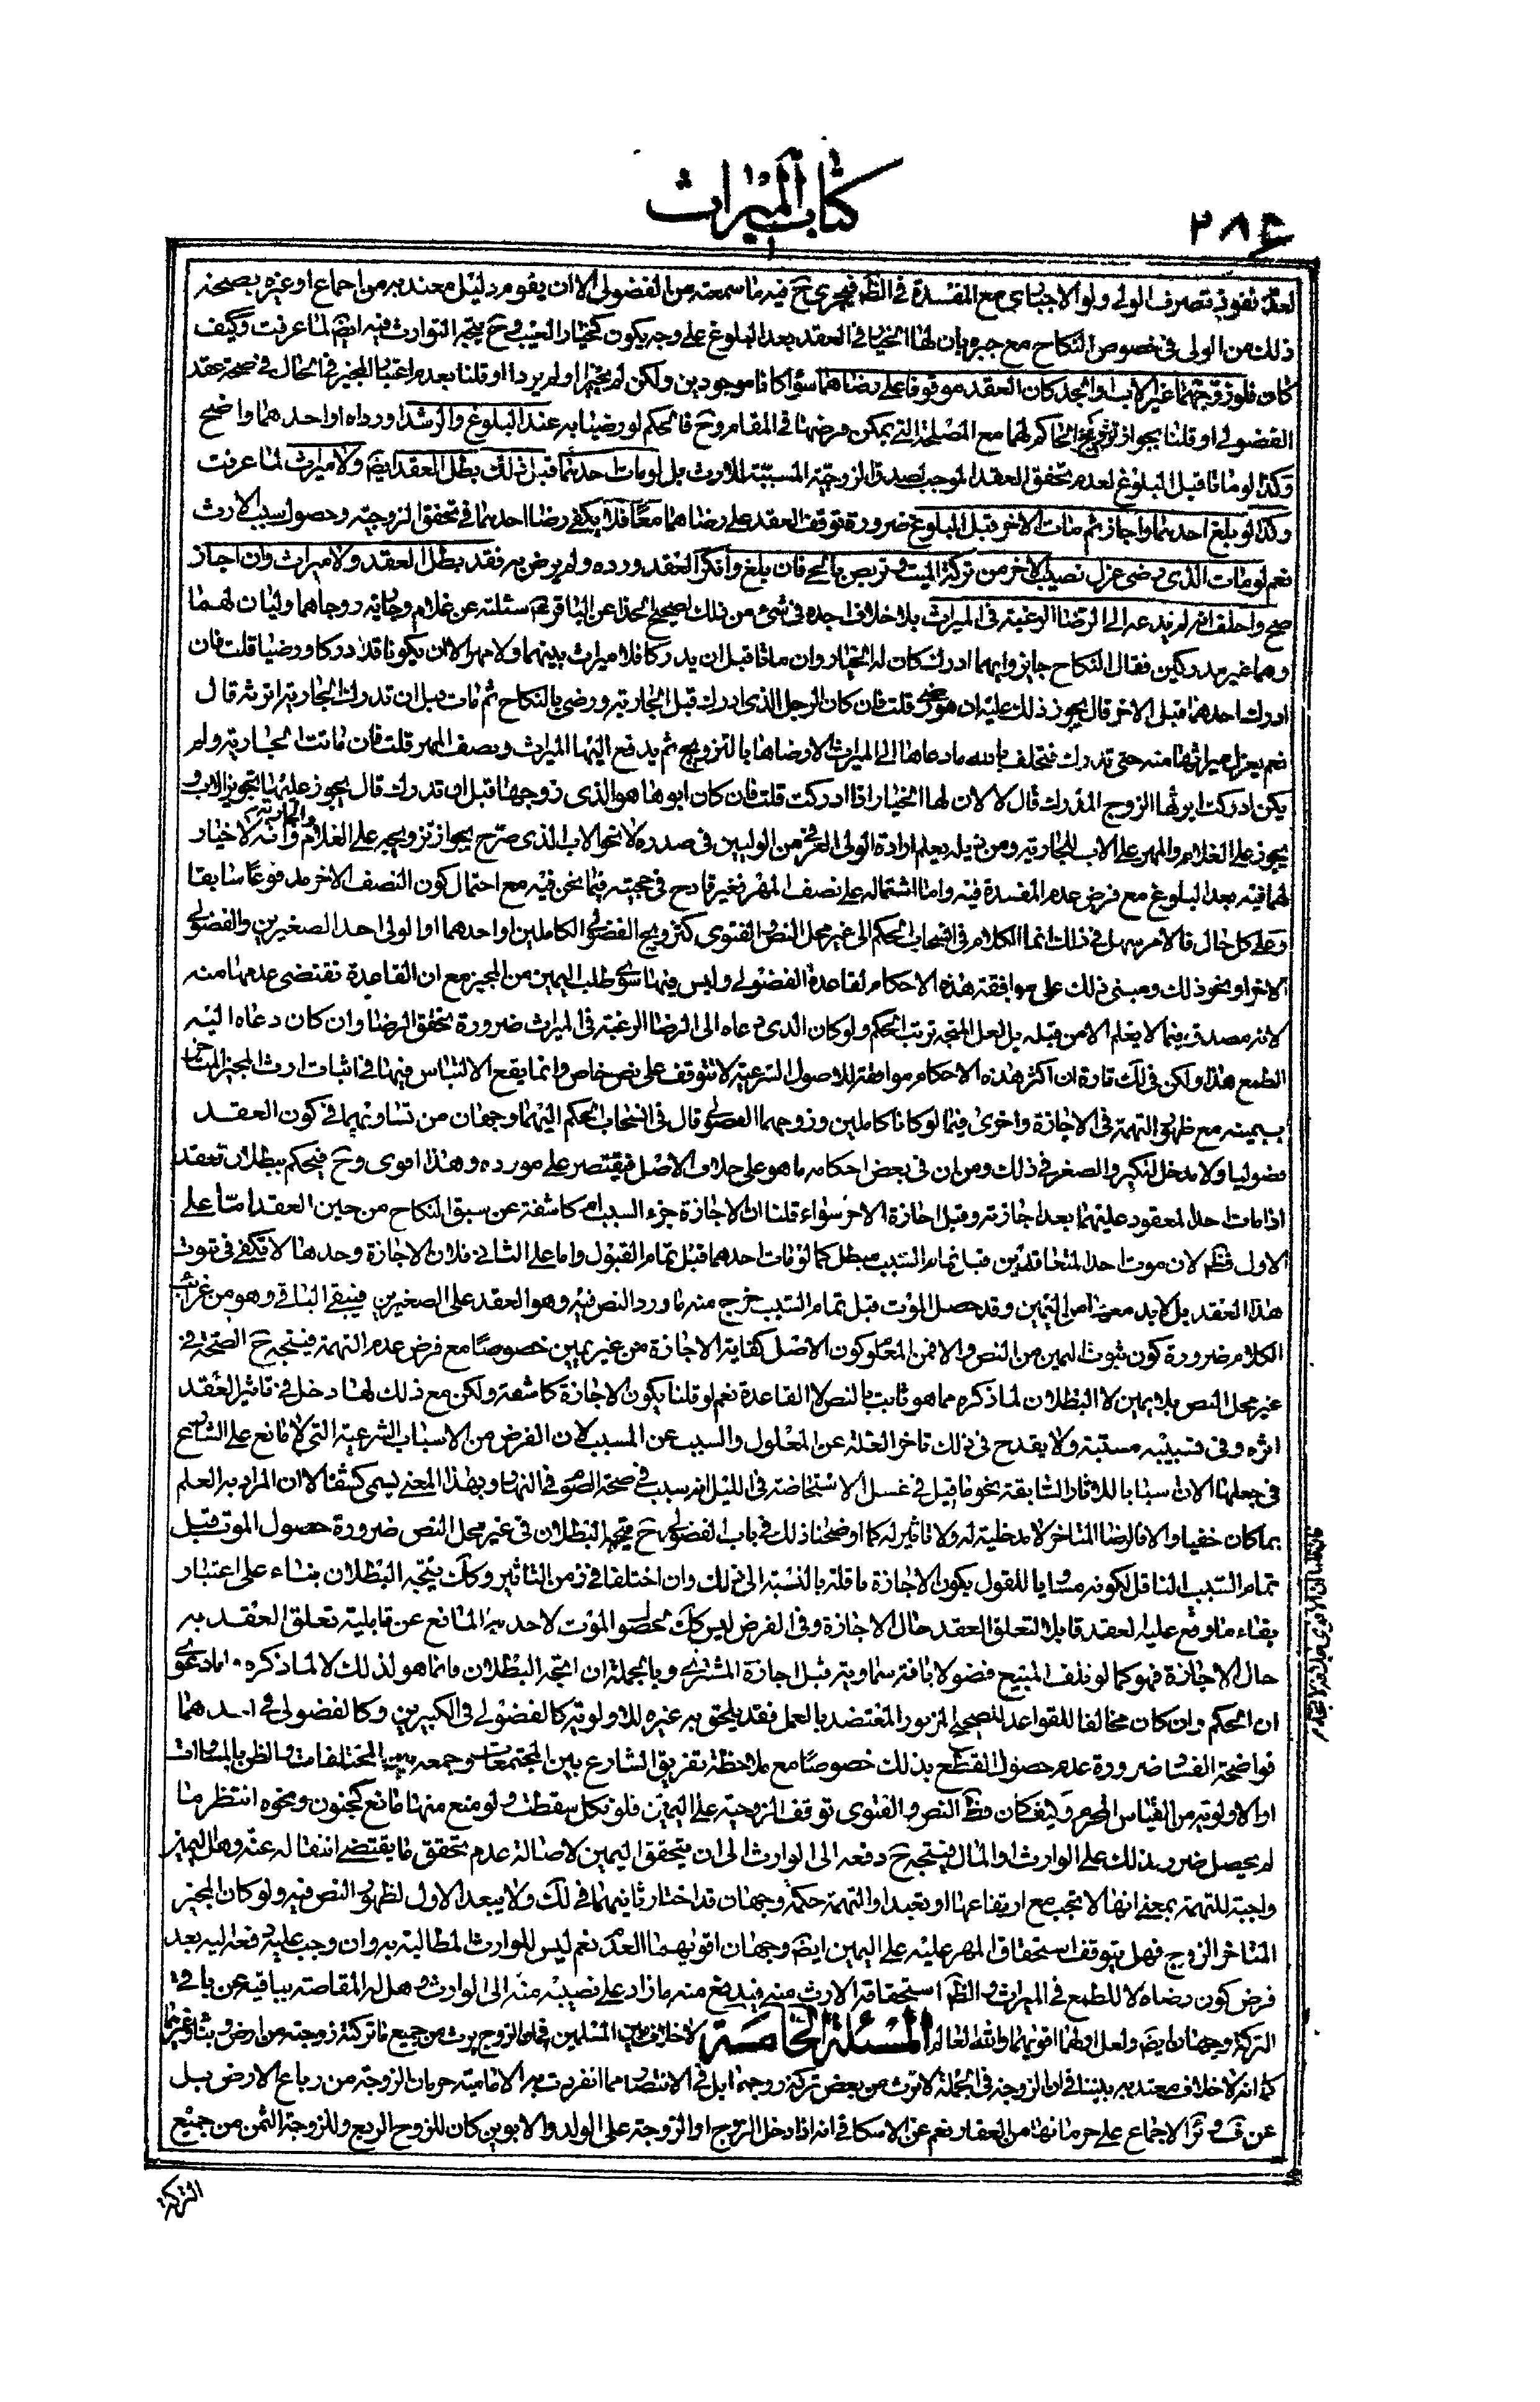 كتاب الميراث
٢٨٤
لعدم نفوذ تصرف الولي ولو الاجباري مع المفسدة في الظ فيجري ح فيه ما سمعته من الفضولي الا ان يقوم دليل معتد به من اجماع او غيره بصحة
ذلك من الولي في خصوص النكاح مع جبره بان لها الخيار في العقد بعد البلوغ على وجه يكون كخيار العيب وح يتجه التوارث فيه ايضا لما عرفت وكيف
كان فلو زوجهما غير الاب والجد كان العقد موقوفا على رضاهما سواء كانا موجودين ولكن لم يجيزا ولم يردا او قلنا بعدم اعتبار المجيز في الحال في صحة عقد
الفضولي او قلنا بجواز تزويج الحاكم لهما مع المصلحة التي يمكن فرضها في المقام وح فالحكم لو رضيا به عند البلوغ والرشد او رداه او احدهما واضح
وكذا لو ماتا قبل البلوغ لعدم تحقق العقد الموجب لصدق الزوجية المسببة للارث بل لو مات احدهما قبل ذلك بطل العقد ايضا ولا ميراث لما عرفت
وكذا لو بلغ احدهما واجاز ثم مات الاخر قبل البلوغ ضرورة توقف العقد على رضاهما معا فلا يكفي رضا احدهما في تحقق الزوجية وحصول سبب الارث
نعم لو مات الذي رضي عزل نصيب الاخر من تركة الميت وتربص بالحي فان بلغ وانكر العقد ورده ولم يرض به فقد بطل العقد ولا ميراث وان اجاز
صح واحلف انه لم يدعه الى الرضا الرغبة في الميراث بلا خلاف اجده في شيء من ذلك لصحيح الحذا عن الباقر سئلته عن غلام وجارية زوجاهما وليان لهما
وهما غير مدركين فقال النكاح جايز وايهما ادرك كان له الخيار وان ماتا قبل ان يدركا فلا ميراث بينهما ولا مهر الا ان يكونا قد ادركا ورضيا قلت فان
ادرك احدهما قبل الاخر قال يجوز ذلك عليه ان هو رضي قلت فان كان الرجل الذي ادرك قبل الجارية ورضي بالنكاح ثم مات قبل ان تدرك الجارية اترثه قال
نعم يعزل ميراثها منه حتى تدرك فتحلف بالله ما دعاها الى الميراث الا رضاها بالتزويج ثم يدفع اليها الميراث ونصف المهر قلت فان ماتت الجارية ولم
يكن ادركت ايرثها الزوج المدرك قال لا لان لها الخيار اذا ادركت قلت فان كان ابوها هو الذي زوجها قبل ان تدرك قال يجوز عليها تجويز الاب و
يجوز على الغلام والمهر على الاب للجارية ومن ذيله يعلم ارادة الولي العرفي من الوليين في صدره لا نحو الاب الذي صرح بجواز تزويجه على الغلام والجارية وانه لا خيار
لهما فيه بعد البلوغ مع فرض عدم المفسدة فيه واما اشتماله على نصف المهر فغير قادح في حجيته فيما نحن فيه مع احتمال كون النصف الاخر مدفوعا سابقا
وعلى كل حال فالامر سهل في ذلك انما الكلام في انسحاب الحكم الى غير محل النص والفتوى كتزويج الفضولي الكاملين او احدهما او الولي احد الصغيرين والفضولي
الاخر او نحو ذلك ومبنى ذلك على موافقة هذه الاحكام لقاعدة الفضولي وليس فيها سوى طلب اليمين من المجيز مع ان القاعدة تقتضي عدمها منه
لانه مصدق فيما لا يعلم الا من قبله بل لعل المتجه ترتب الحكم ولو كان الذي دعاه الى الرضا الرغبة في الميراث ضرورة تحقق الرضا وان كان دعاه اليه
الطمع هذا ولكن في لك تارة ان اكثر هذه الاحكام موافقة للاصول الشرعية لا تتوقف على نص خاص وانما يقع الالتباس فيها في اثبات ارث المجيز المتاخر
بيمينه مع ظهور التهمة في الاجازة واخرى فيما لو كانا كاملين وزوجهما الفضولي قال في انسحاب الحكم اليهما وجهان من تساويهما في كون العقد
فضوليا ولا مدخل للكبر والصغر في ذلك ومن ان في بعض احكامه ما هو على خلاف الاصل فيقتصر على مورده وهذا اقوى وح فيحكم ببطلان العقد
اذا مات احد المعقود عليهما بعد اجازته وقبل اجازة الاخر سواء قلنا ان الاجازة جزء السبب ام كاشفة عن سبق النكاح من حين العقد اما على
الاول فظ لان موت احد المتعاقدين قبل تمام السبب مبطل كما لو مات احدهما قبل تمام القبول واما على الثاني فلان الاجازة وحدها لا تكفي في ثبوت
هذا العقد بل لا بد معها من اليمين وقد حصل الموت قبل تمام السبب خرج منه ما ورد النص فيه وهو العقد على الصغيرين فيبقى الباقي وهو من غرائب
الكلام ضرورة كون ثبوت اليمين من النص والا فمن المعلوم كون الاصل كفاية الاجازة من غير يمين خصوصا مع فرض عدم التهمة فيتجه ح الصحة في
غير محل النص بلا يمين لا البطلان لما ذكره مما هو ثابت بالنص لا القاعدة نعم لو قلنا بكون الاجازة كاشفة ولكن مع ذلك لها دخل في تاثير العقد
اثره وفي تسبيبه مسببه ولا يقدح في ذلك تاخر العلة عن المعلول والسبب عن المسبب لان الفرض من الاسباب الشرعية التي لا مانع على الشارع
في جعلها الان سببا بالاثار السابقة نحو ما قيل في غسل الاستحاضة في الليل انه سبب في صحة الصوم في النهار وبهذا المعنى يسمى كشفا لا ان المراد به العلم
بما كان خفيا والا فالرضا المتاخر لا مدخلية له ولا تاثير له كما اوضحنا ذلك في باب الفضولي ح فيتجه البطلان في غير محل النص ضرورة حصول الموت قبل
تمام السبب الناقل لكونه مساويا للقول بكون الاجازة ناقلة بالنسبة الى ذلك وان اختلفا في زمن التاثير وكك يتجه البطلان بناء على اعتبار
بقاء ما وقع عليه العقد قابلا لتعلق العقد حال الاجازة وفي الفرض ليس كك لحصول الموت لاحدهما المانع عن قابلية تعلق العقد به
حال الاجازة فهو كما لو تلف المبيع فضولا بافة سماوية قبل اجازة المشتري وبالجملة ان اتجه البطلان فانما هو لذلك لا لما ذكره واما دعوى
ان الحكم وان كان مخالفا للقواعد لصحيح المزبور المعتضد بالعمل فقد يلحق به غيره للاولوية كالفضولي في الكبيرين وكالفضولي في احدهما
فواضحة الفساد ضرورة عدم حصول القطع بذلك خصوصا مع ملاحظة تفريق الشارع بين المجتمعات وجمعه بين المختلفات والظن بالمساواة
او الاولوية من القياس المحرم وكيف كان فظ النص والفتوى توقف الزوجية على اليمين فلو نكل سقطت ولو منع منها مانع كجنون ونحوه انتظر ما
لم يحصل ضرر بذلك على الوارث او المال فيتجه ح دفعه الى الوارث الى ان يتحقق اليمين لاصالة عدم تحقق ما يقتضي انتقاله عنه وهل اليمين
واجبة للتهمة بمعنى انها لا تجب مع ارتفاعها او تعبدا والتهمة حكمة وجهان قد اختار ثانيهما في لك ولا يبعد الاول لظهور النص فيه ولو كان المجيز
المتاخر الزوج فهل يتوقف استحقاق المهر عليه على اليمين ايضا وجهان اقويهما العدم نعم ليس للوارث المطالبة به وان وجب عليه دفعه اليه بعد
فرض كون رضاه لا للطمع في الميراث والظ استحقاقه الارث منه فيدفع منه ما زاد على نصيبه منه الى الوارث وهل له المقاصة بباقيه عن باقي
التركة وجهان ايضا ولعل اولهما اقويهما والله العالم المسئلة الخامسة لا خلاف بين المسلمين في ان الزوج يرث من جميع ما تركته زوجته من ارض وبناء وغيرهما
كما انه لا خلاف معتد به بيننا في ان الزوجة في الجملة لا ترث من بعض تركة زوجها بل في الانتصار مما انفردت به الامامية حرمان الزوجة من رباع الارض بل
عن ف و ئر الاجماع على حرمانها من العقار نعم عن الاسكافي انه اذا دخل الزوج او الزوجة على الولد والابوين كان للزوج الربع وللزوجة الثمن من جميع
التركة